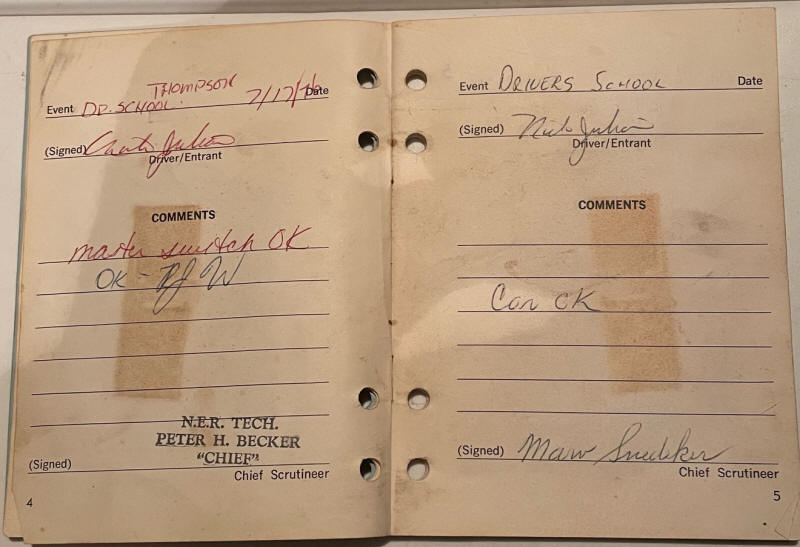 THOMPSON
Event DR. SCHOOL. 7/17/76 Date
(Signed) Julian
Driver/Entrant
COMMENTS
master switch OK
OK - W
N.E.R. TECH.
PETER H. BECKER
"CHIEF"
(Signed)
Chief Scrutineer
4
Event DRIVERS SCHOOL Date
(Signed) Nick Julian
Driver/Entrant
COMMENTS
Car OK
(Signed) Marv Snedeker
Chief Scrutineer
5